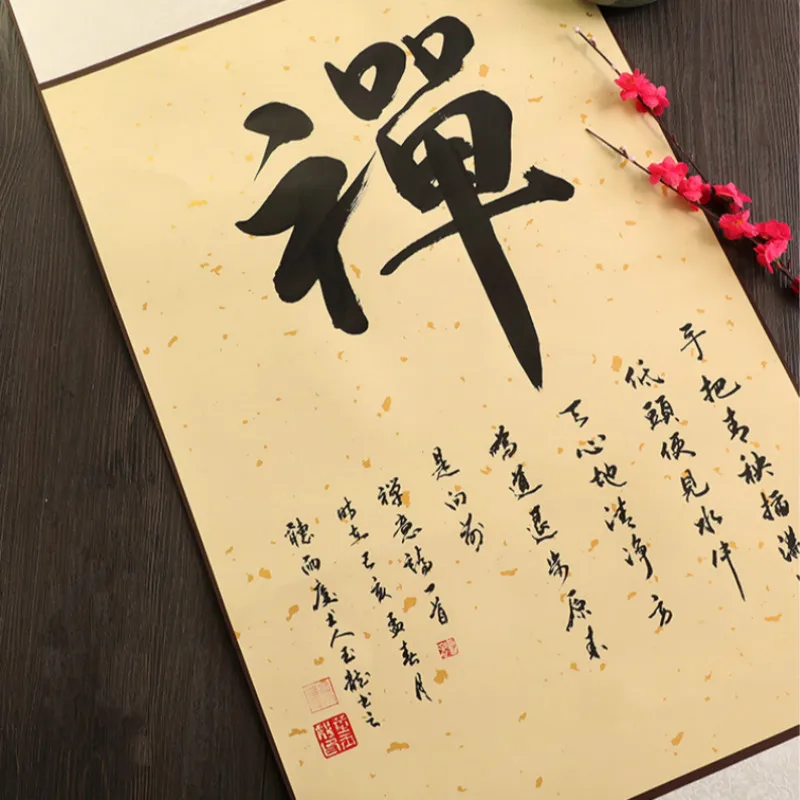 禪
手把青秧插滿
低頭便見水中
天心地清淨方
為道退步原來
是向前
禪意詩一首
時在己亥孟春月
聽雨廬主人玉龍書之